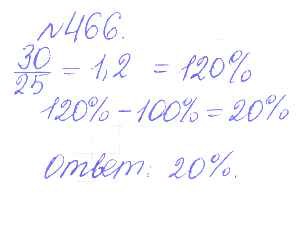 №466.
30/25 = 1,2 = 120%
120% - 100% = 20%
Ответ: 20%.